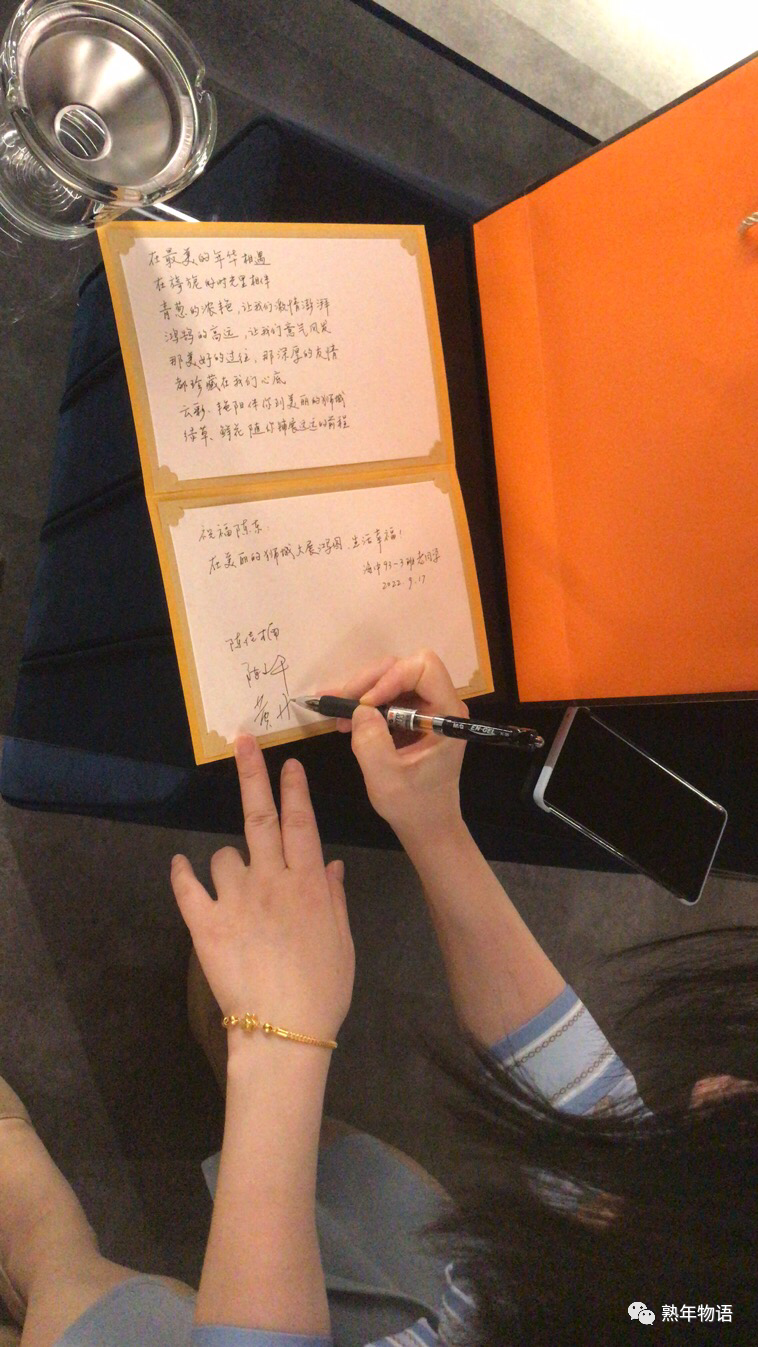 在最美的年华相遇
在旖旎的时光里相伴
青葱的浓艳，让我们激情澎湃
鸿鹄的高远，让我们意气风发
那美好的过往，那深厚的友情
都珍藏在我们心底
云彩、艳阳伴你到美丽的狮城
绿草、鲜花随你铺展远远的前程
祝福陈东：
在美丽的狮城大展鸿图、生活幸福！
海中93-3班老同学
2022.9.17
陈佳
黄
EN-GEL
熟年物语